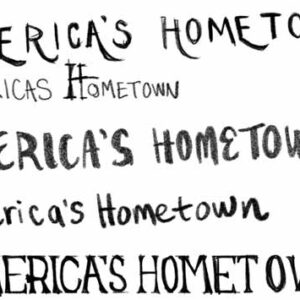 ERICA'S HOMETO
ICAS HOMETOWN
ERICA'S HOMETOW
erica's Hometown
MERICA'S HOMETOW